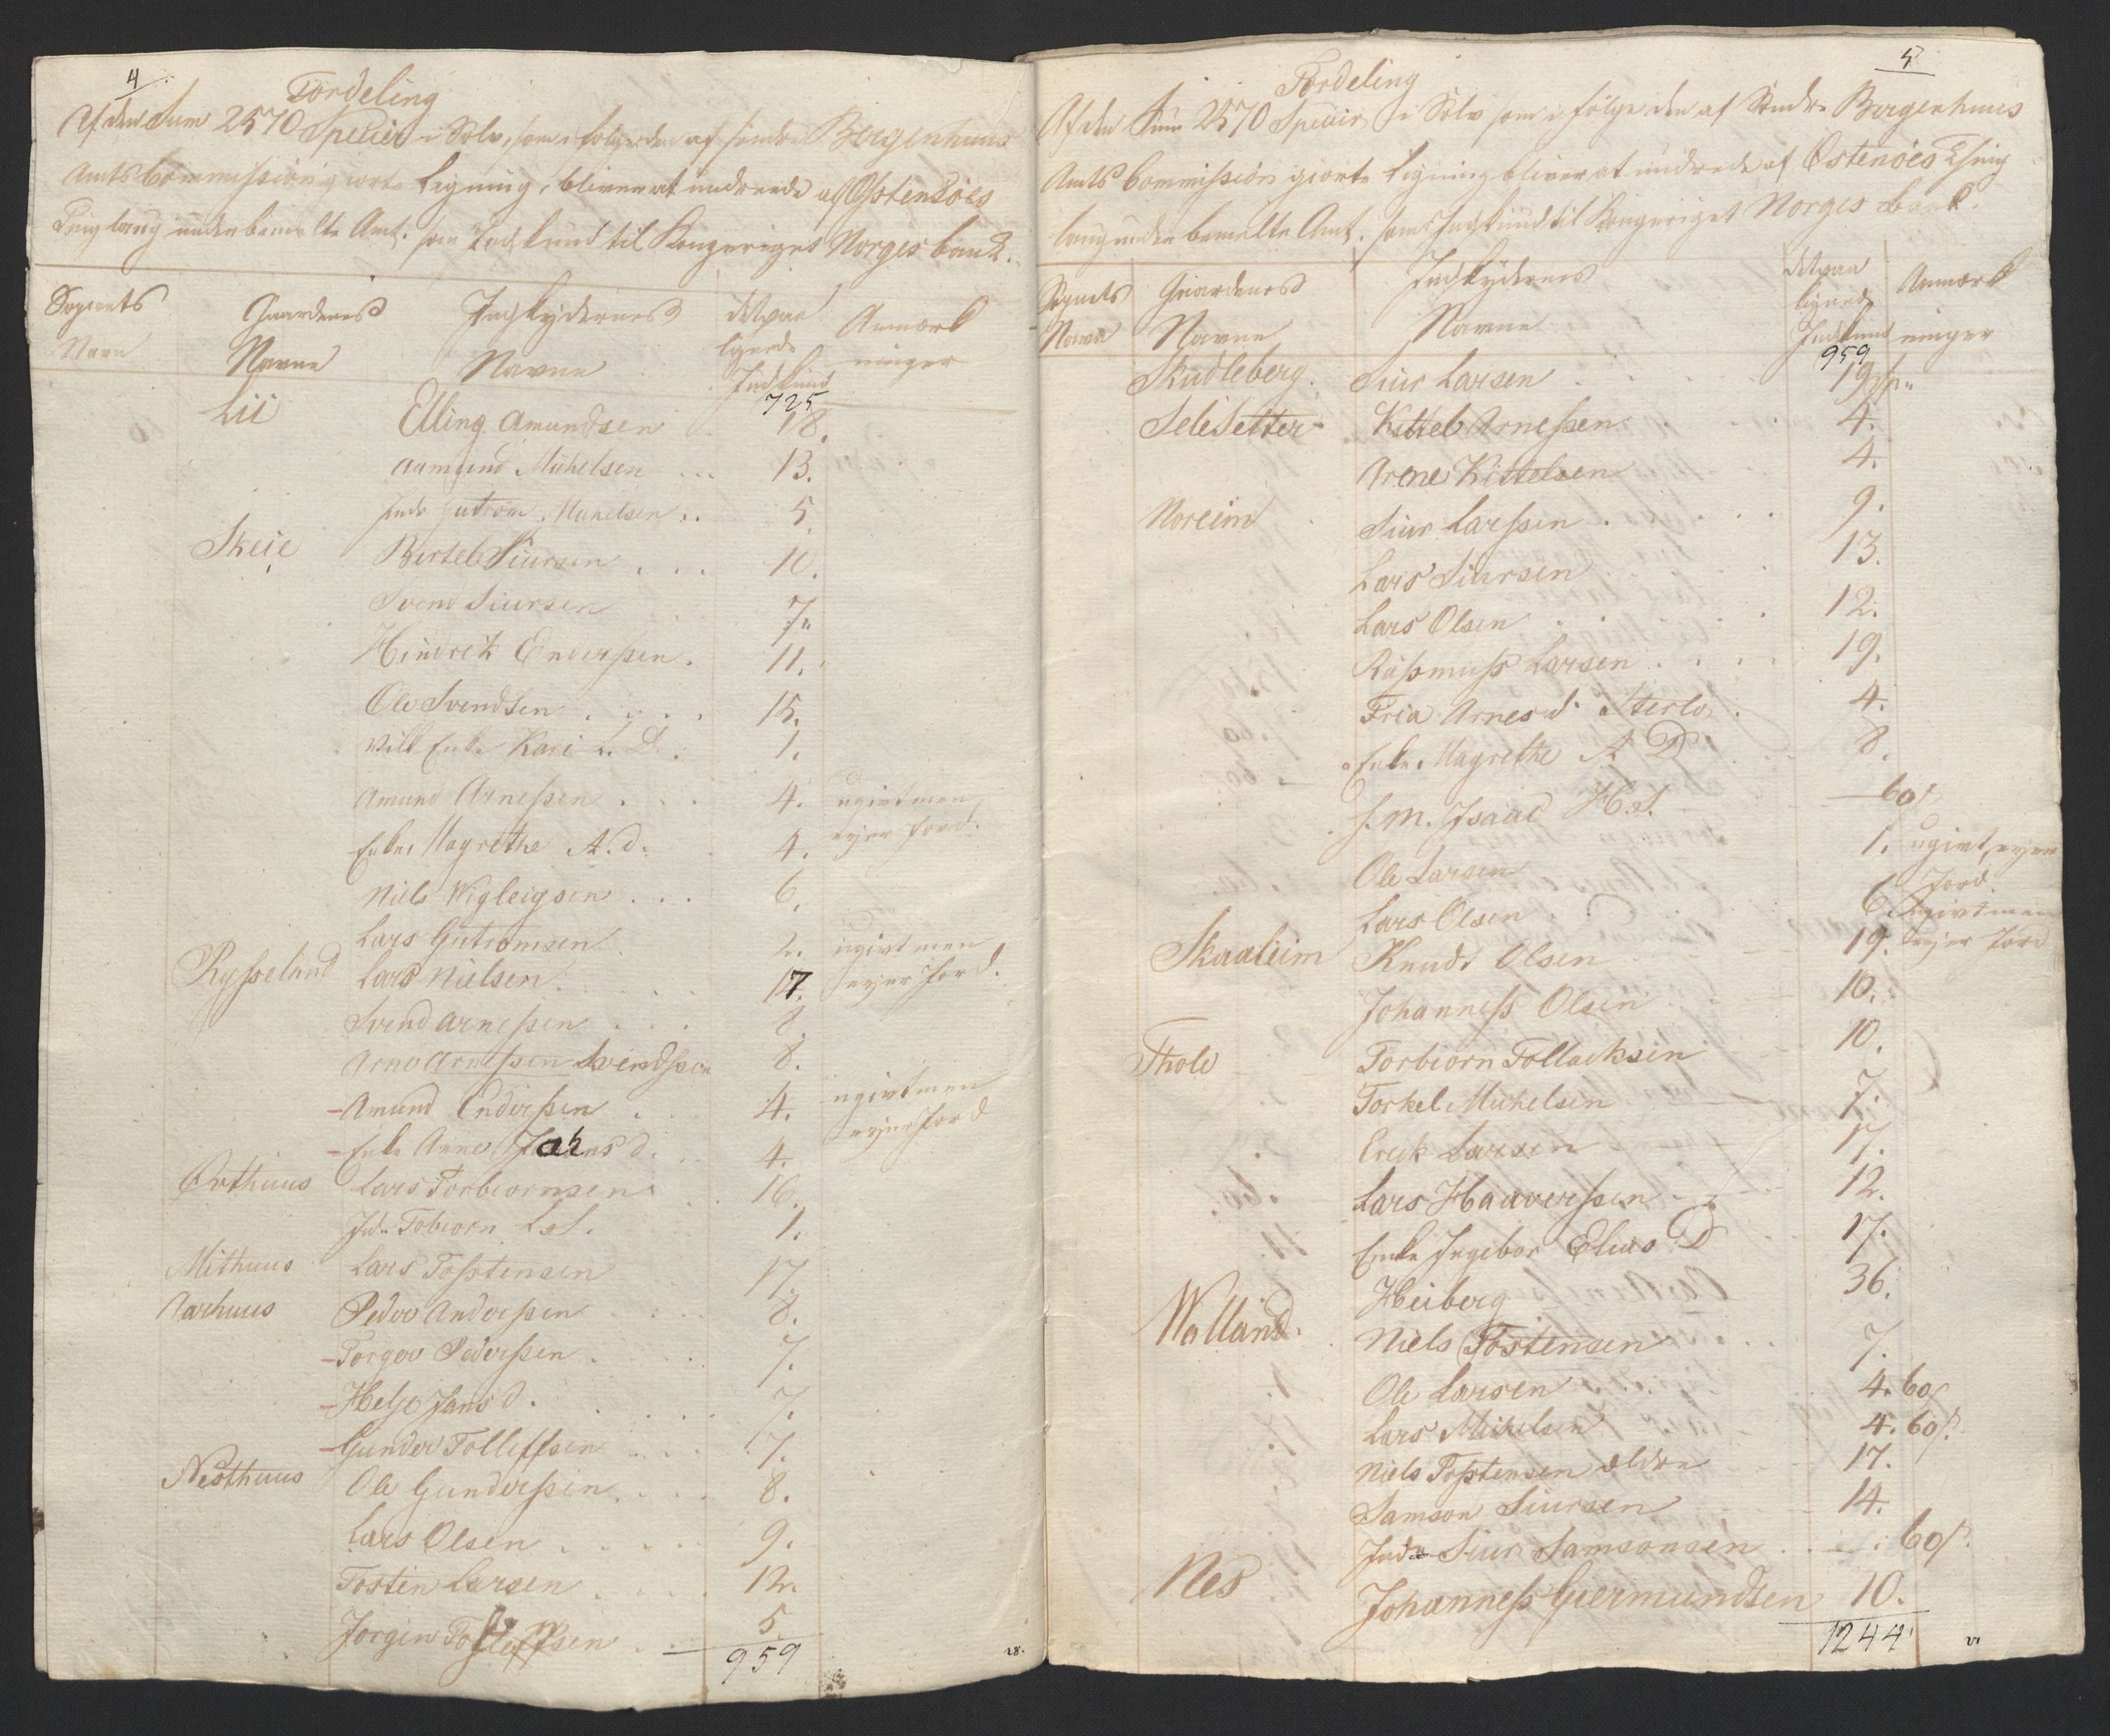 4
Fordeling
Af den Sum 2570 Specier i Sølv, som i følge den af søndre Bergenhuus
Amts Commission giorte Ligning, bliver at udreede af Østensöes
Ting laug under bemelte Amt. som Indskud til Kongeriges Norges bank.
Sognets Navn
Gaardenes Navne
Indskydernes Navne
det paa lignede Indskud
Anmærkninger
725
Lii Elling Amundsen 18.
Aamund Mikelsen ... 13.
Gutrom Mikelsen .. 5.
Skeie Bertel Siursen ... 10.
Svend Siursen 7"
Hindrik Enderssen. 11.
Ole Svendsen .... 15.
Enke Kari L. D. 1.
Amund Arnessen ... 4. ugivt men
ejer Jord.
Enke Magrethe A. d. 4.
Niels Wigleigsen ... 6.
Lars Gutromsen 2. ugivt men
ejer Jord.
Rysseland Lars Nielsen 17.
Svend Arnessen ... 8.
Arne Arnessen Svendssen 8.
Amund Enderssen . 4. ugivt men
ejer Jord
Enke Anne Johans d. .. 4.
Orthuus Lars Torbiornsen 16.
Tobiorn L.s. 1.
Mithuus Lars Tosstensen 17.
Aarhuus Peder Anderssen 8.
Torger Pederssen. 7.
Helje Jans d. 7.
Gunder Tolleffsen 7.
Nesthuus Ole Gunderssen .... 8.
Lars Olsen ..... 9.
Tosten Larsen .... 12.
Jorgen Tolleffsen .. 5.
959
28.
5
Fordeling
Af den Sum 2570 Specier i Sølv som i følge den af Søndre Bergenhuus
Amts Commission giorte Ligning bliver at udrede af Østensöes Thing
laug under bemelte Amt. som Indskud til Kongeriget Norges bank.
Sognets Navn
Gaardenes Navne
Indskydernes Navne
det paa lignede Indskud
Anmærkninger
959
Skudleberg. Siur Larsen 19
SeleSetter Kittel Arnessen 4.
Arene Kittelsen 4.
Noreim Siur Larssen 9.
Lars Siursen 13.
Lars Olsen 12.
Rassmuss Larsen 19.
Fria Arnes d. 4.
Enke Magrethe A D 8.
Isaac H.s. 60 s
Ole Larsen 1. ugivt, ejer
Jord.
Lars Olsen 6. ugivt men
ejer Jord
Skaaleim Knudt Olsen 19.
Johanness Olsen 10.
Thole Torbiorn Tollacksen 10.
Torkel Mickelsen 7.
Ereck Larsen 17.
Lars Haaverssen 12.
Enke Ingebor Elias D 17.
Heiberg 36.
Walland. Niels Tostensen 7.
Ole Larsen 4. 60 s
Lars Mickelsen 4. 60 s.
Niels Tosstensen ældre 17.
Samson Siursen 14.
Siur Samsonsen 60 s.
Nes Johanness Giermundsen 10.
1244